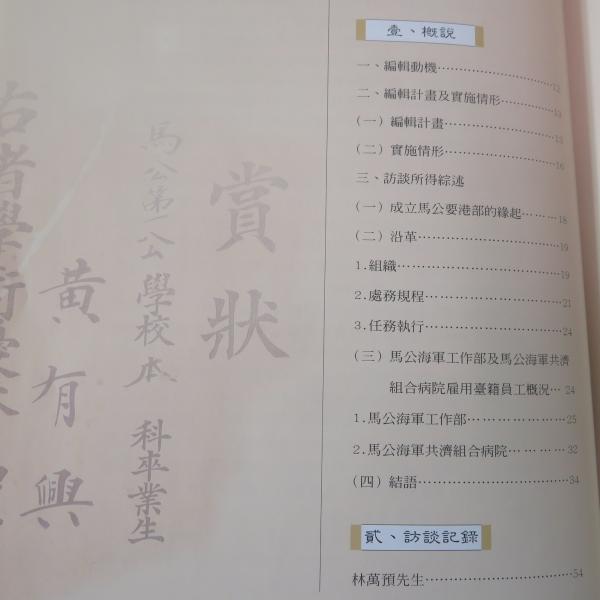 壹、概說
一、編輯動機……………………12
二、編輯計畫及實施情形…………13
(一)編輯計畫……………………13
(二)實施情形……………………16
三、訪談所得綜述
(一)成立馬公要港部的緣起………18
(二)沿革…………………………19
1.組織……………………………19
2.處務規程………………………21
3.任務執行………………………24
(三)馬公海軍工作部及馬公海軍共濟
組合病院雇用臺籍員工概況…24
1.馬公海軍工作部………………25
2.馬公海軍共濟組合病院…………32
(四)結語…………………………34
貳、訪談記錄
林萬預先生…………………………54
賞狀
馬公第一公學校本科卒業生
黃有興
右者學術